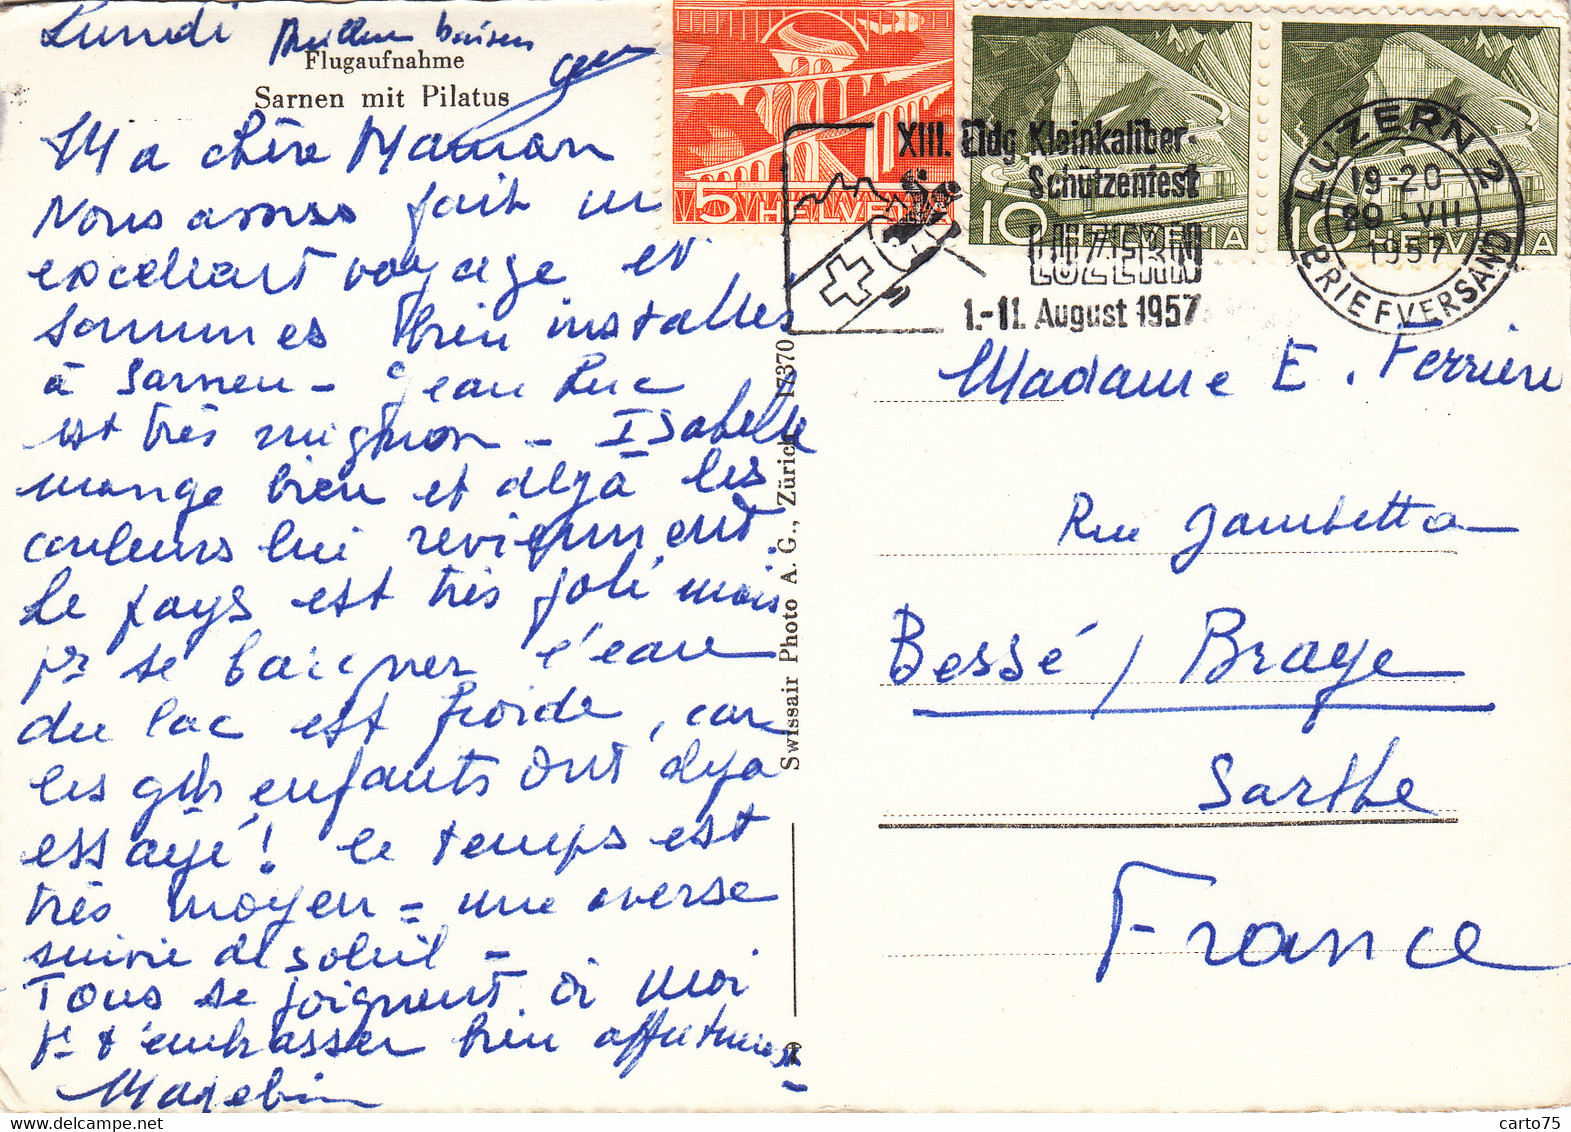 Lundi
baisers
Flugaufnahme
Sarnen mit Pilatus
Ma chère Maman
Nous avons fait un
excellent voyage et
sommes bien installés
à Sarnen - Jean Luc
est très mignon - Isabelle
mange bien et déjà les
couleurs lui reviennent.
Le pays est très joli mais
pr se baigner l'eau
du lac est froide, car
les gds enfants ont déjà
essayé! le temps est
très moyen = une averse
suivie de soleil -
Tous se joignent à moi
pr t'embrasser bien affectueust
Swissair Photo A. G., Zürich 17370
5 HELVETIA
10 HELVETIA
10 HELVETIA
XIII. Eidg Kleinkaliber-
Schützenfest
LUZERN
1.-11. August 1957
LUZERN 2
19-20
20.VII
1957
BRIEFVERSAND
Madame E. Ferrière
Rue Gambetta
Bessé / Braye
Sarthe
France
carto75